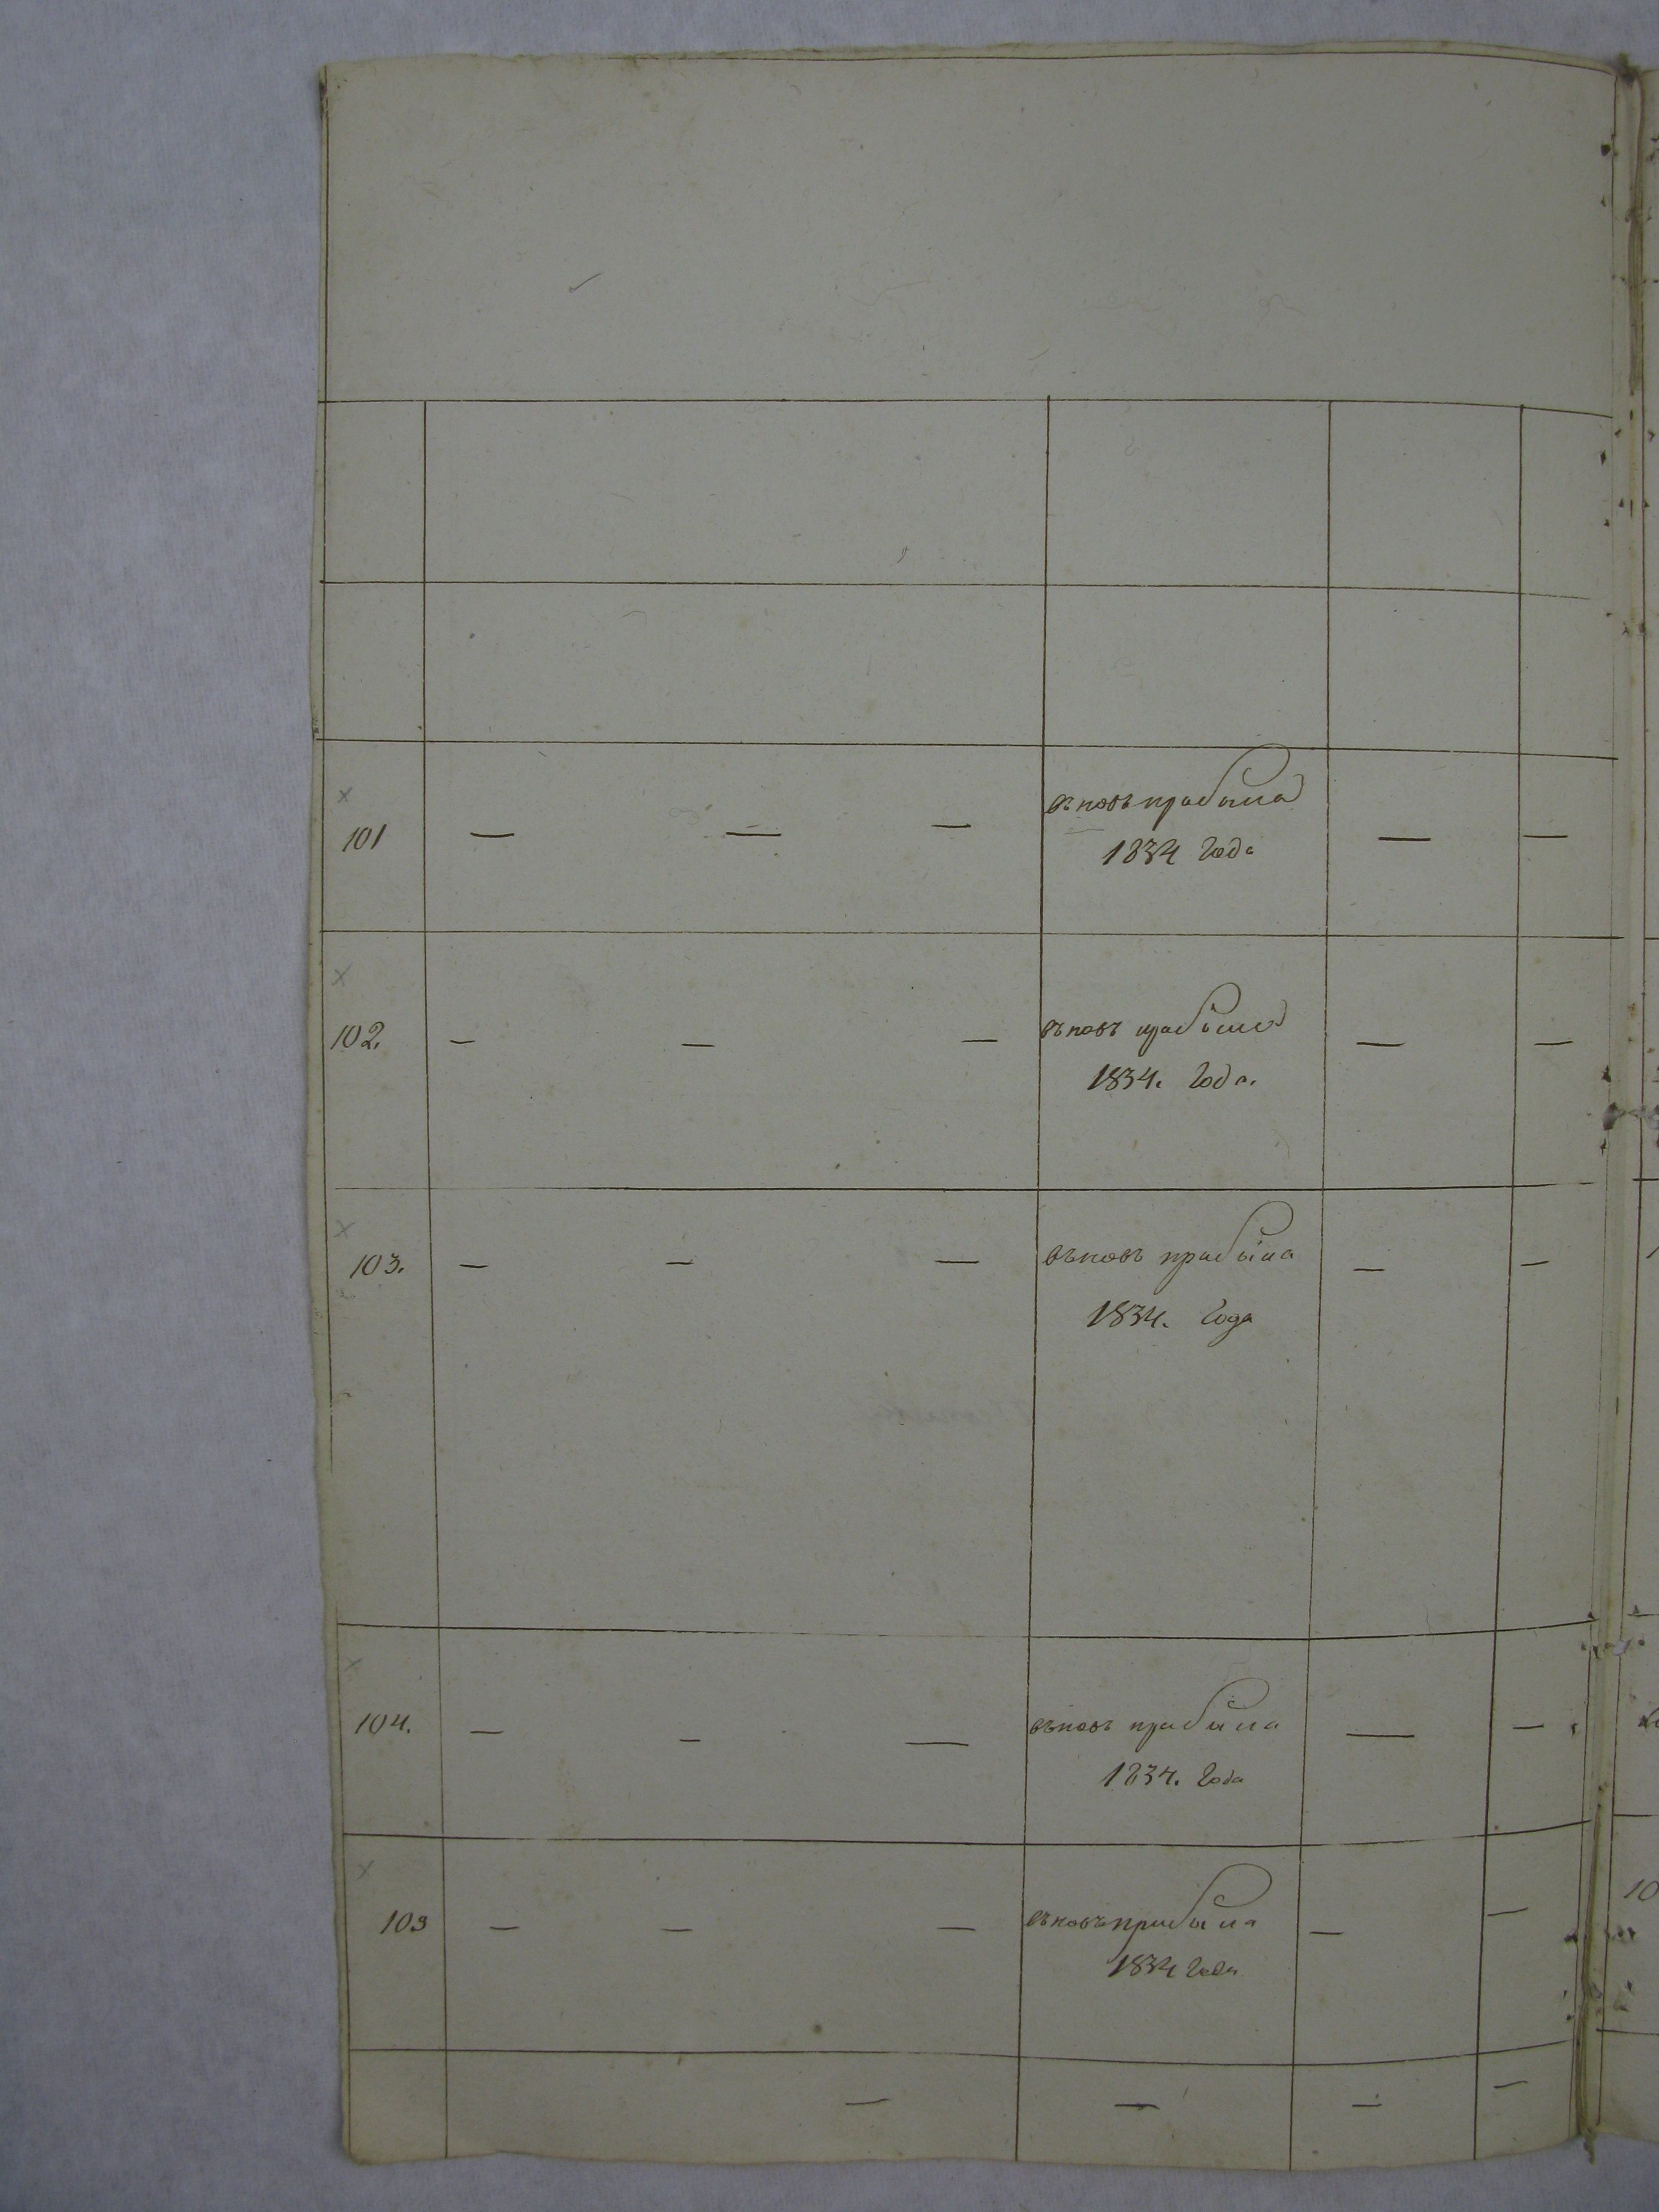 101 — — — вновь прибыла — —
1834 года
102. — — — вновь прибыла — —
1834. года.
103. — — — вновь прибыла — —
1834. года
104. — — — вновь прибыла — —
1834. года
105 — — — вновь прибыла — —
1834 года
— — — —